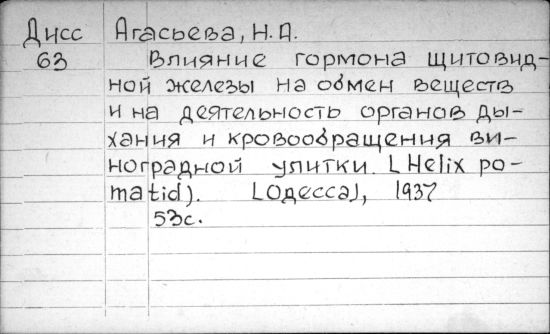 Дисс Агасьева, Н.А.
63 Влияние гормона щитовид-
ной железы на обмен веществ
и на деятельность органов ды-
хания и кровообращения ви-
ноградной улитки. [Helix po-
matid). [Одесса], 1937
53с.